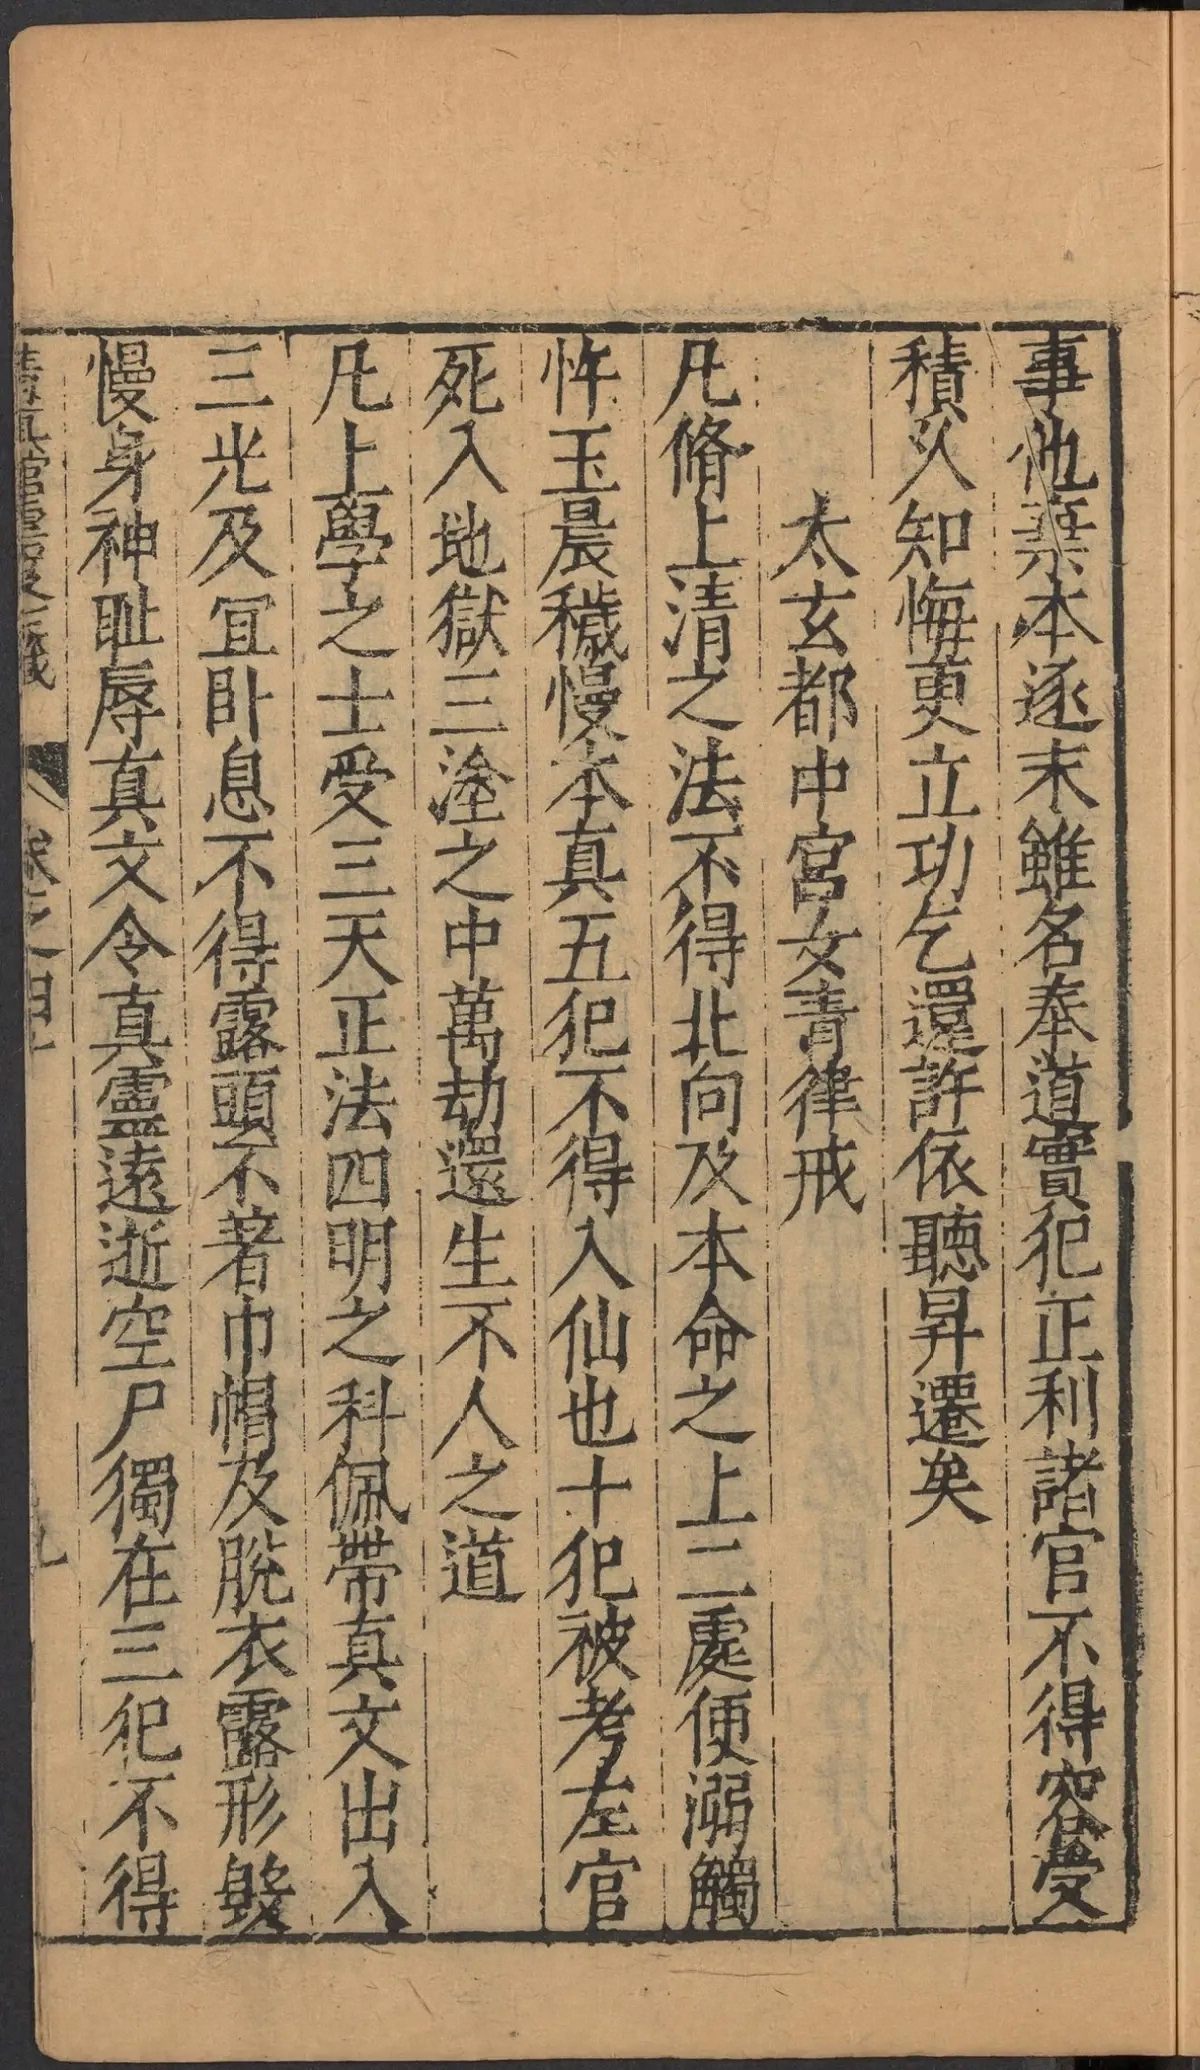 事他棄本逐末雖名奉道實犯正利諸官不得容受
積久知悔更立功乞還許依聽昇遷矣
太玄都中宮女青律戒
凡脩上清之法不得北向及本命之上二處便溺觸
忤玉晨穢慢本真五犯不得入仙也十犯被考左官
死入地獄三塗之中萬劫還生不人之道
凡上學之士受三天正法四明之科佩帶真文出入
三光及冝臥息不得露頭不著巾帽及脫衣露形髮
慢身神耻辱真文令真靈遠逝空尸獨在三犯不得
卷之四十
九